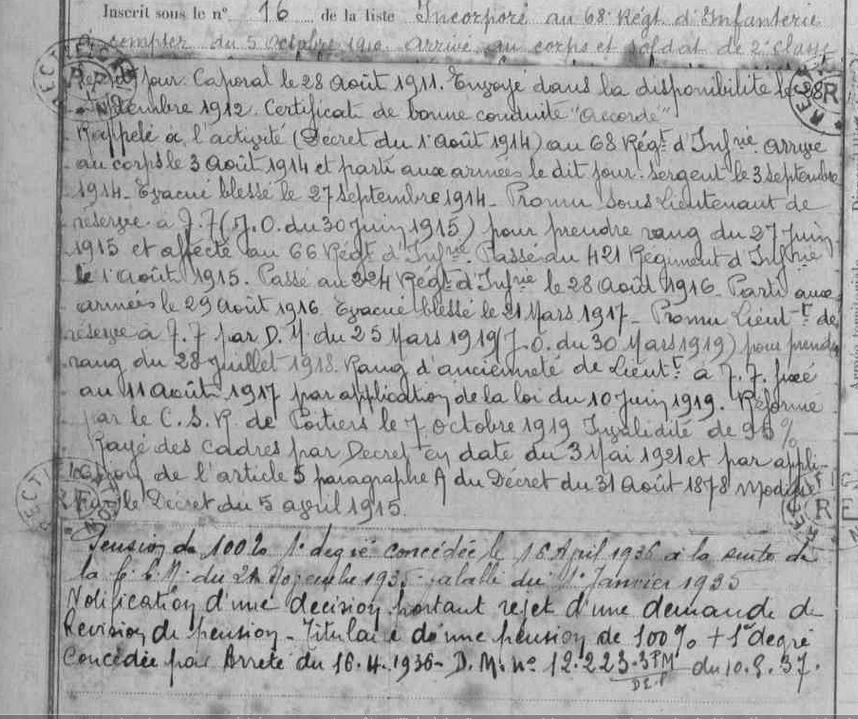 Inscrit sous le n° 16 de la liste Incorporé au 68e Régt d'Infanterie
à compter du 5 Octobre 1910. Arrivé au corps et soldat de 2e classe
le dit jour. Caporal le 28 Août 1911. Envoyé dans la disponibilité le 28
Septembre 1912. Certificat de bonne conduite "accordé"
Rappelé à l'activité (Décret du 1er Août 1914) au 68 Régt d'Infrie arrivé
au corps le 3 Août 1914 et parti aux armées le dit jour. Sergent le 3 Septembre
1914 - Evacué blessé le 27 Septembre 1914 - Promu Sous Lieutenant de
réserve à T.T (J.O. du 30 Juin 1915) pour prendre rang du 27 Juin
1915 et affecté au 66 Régt d'Infrie. Passé au 421 Régiment d'Infrie
le 1er Août 1915. Passé au 224 Régt d'Infrie le 28 Août 1916. Parti aux
armées le 29 Août 1916. Evacué blessé le 21 Mars 1917 - Promu Lieutt de
réserve à T.T par D.M. du 25 Mars 1919 (J.O. du 30 Mars 1919) pour prendre
rang du 28 Juillet 1918. Rang d'ancienneté de Lieutt à T.T. fixé
au 11 Août 1917 par application de la loi du 10 Juin 1919. Réformé
par le C.S.R. de Poitiers le 7 Octobre 1919 Invalidité de 95%
Rayé des cadres par Décret en date du 3 Mai 1921 et par appli-
cation de l'article 5 paragraphe A du Décret du 31 Août 1878 modifié
par le Décret du 5 avril 1915.
Pension de 100% 1er degré concédée le 16 April 1936 à la suite de
la C.R. du 21 Novembre 1935 jalable du 1er Janvier 1935
Notification d'une décision portant rejet d'une demande de
Revision de pension - Titulaire de une pension de 100% + 1er degré
Concédée par Arrêté du 16.4.1936 - D.M. n° 12.223-3PM du 10.8.37.